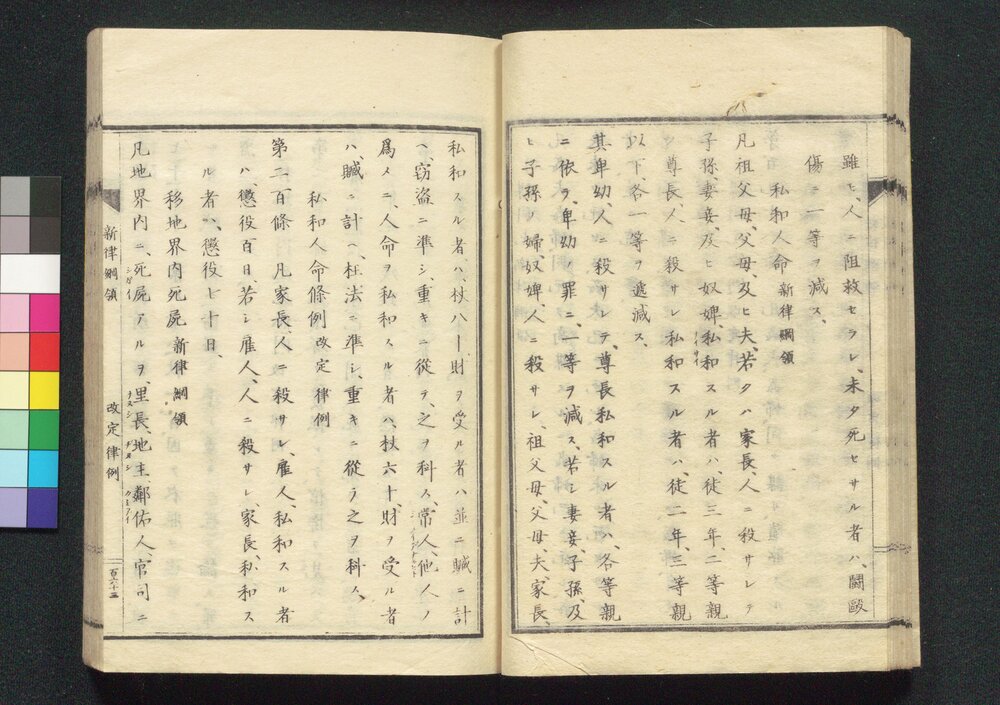 雖モ、人ニ阻救セラレ、未タ死セサル者ハ、鬪毆
傷ニ二等ヲ減ス、
私和人命 新律綱領
凡祖父母、父母、及ヒ夫、若クハ家長、人ニ殺サレテ
子孫、妻妾、及ヒ奴婢、私和スル者ハ、徒三年、二等親
ノ尊長、人ニ殺サレ私和スル者ハ、徒二年、三等親
以下、各一等ヲ遞減ス、
其卑幼、人ニ殺サレテ、尊長私和スル者ハ、各等親
ニ依ヲ、卑幼ノ罪ニ、一等ヲ減ス、若シ妻妾、子孫、及
ヒ子孫ノ婦、奴婢、人ニ殺サレ、祖父母、父母、夫、家長、
私和スル者ハ、杖八十、財ヲ受ル者ハ並ニ贓ニ計
ヘ、窃盗ニ準シ、重キニ從テ、之ヲ科ス、常人、他人ノ
爲メニ、人命ヲ私和スル者ハ、杖六十、財ヲ受ル者
ハ、贓ニ計ヘ、枉法ニ準シ、重キニ從テ之ヲ科ス、
私和人命條例 改定律例
第二百條 凡家長人ニ殺サレ、雇人、私和スル者
ハ、懲役百日、若シ雇人、人ニ殺サレ、家長、私和ス
ル者ハ、懲役七十日、
移地界内死屍 新律綱領
凡地界内ニ、死屍アルヲ、里長、地主、鄰佑人、官司ニ
新律綱領
改定律例
百六十三